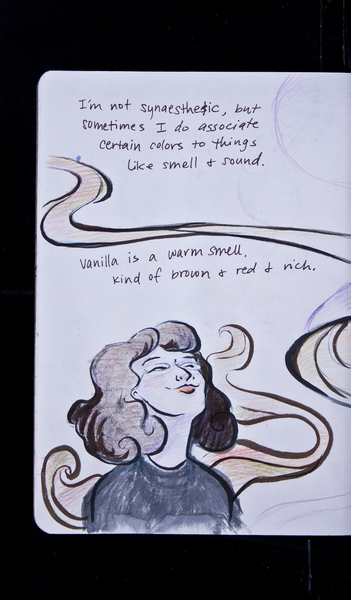 I'm not synaesthetic, but
sometimes I do associate
certain colors to things
like smell & sound.
Vanilla is a warm smell,
kind of brown & red & rich.